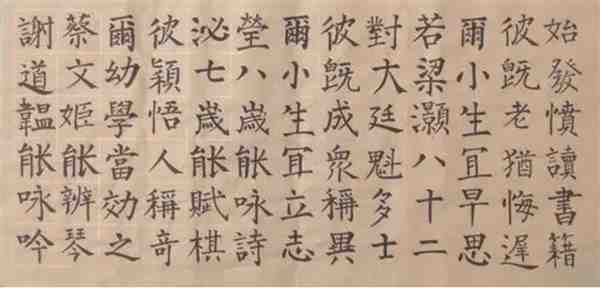 始發憤讀書籍
彼既老猶悔遲
爾小生宜早思
若梁灝八十二
對大廷魁多士
彼既成眾稱異
爾小生宜立志
瑩八歲能咏詩
泌七歲能賦棋
彼穎悟人稱奇
爾幼學當效之
蔡文姬能辨琴
謝道韞能咏吟